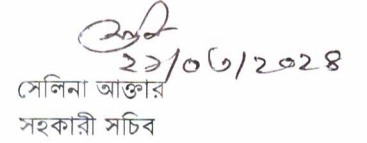 ২১/০৫/২০২৪
সেলিনা আক্তার
সহকারী সচিব